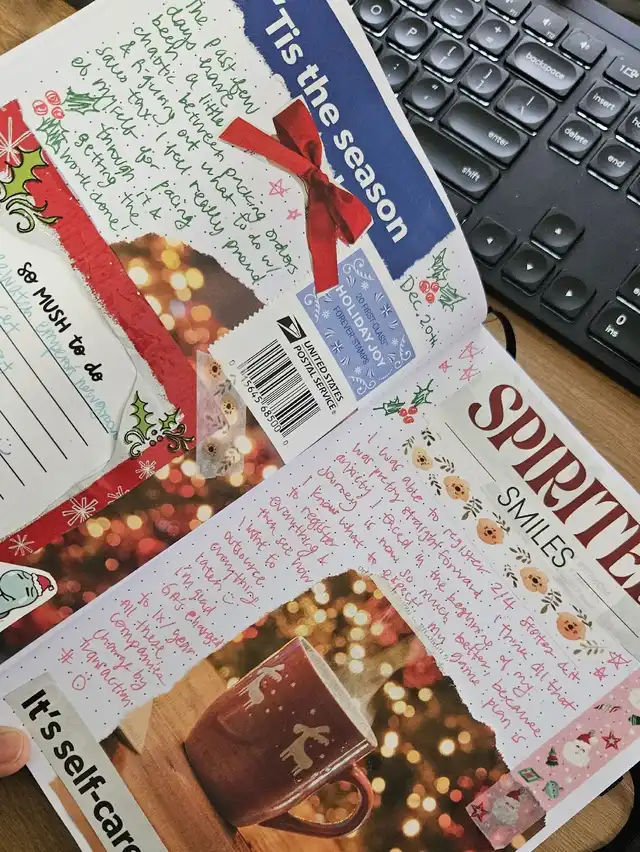 The past few
days have
been a little
chaotic between packing orders
& figuring out what to do w/
sales tax. I feel really proud
of myself for pacing
though it &
getting the
work done.
'Tis the season
so MUSH to do
HOLIDAY JOY
FOREVER STAMPS
UNITED STATES
POSTAL SERVICE
Dec. 20th
SPIRITE
SMILES
I was able to register 2/4 states. It
was pretty straight forward. I think all that
anxiety I faced in the beginning of my
journey is now so much better because
I know what to expect. my game plan is
to register
everything &
then see how
I want to
outsource
everything
later
im glad
GA's changed
to 1x/year.
All these
companies
charge by
# transaction
It's self-care
backspace
enter
shift
insert
delete
end
O
P
0
ins